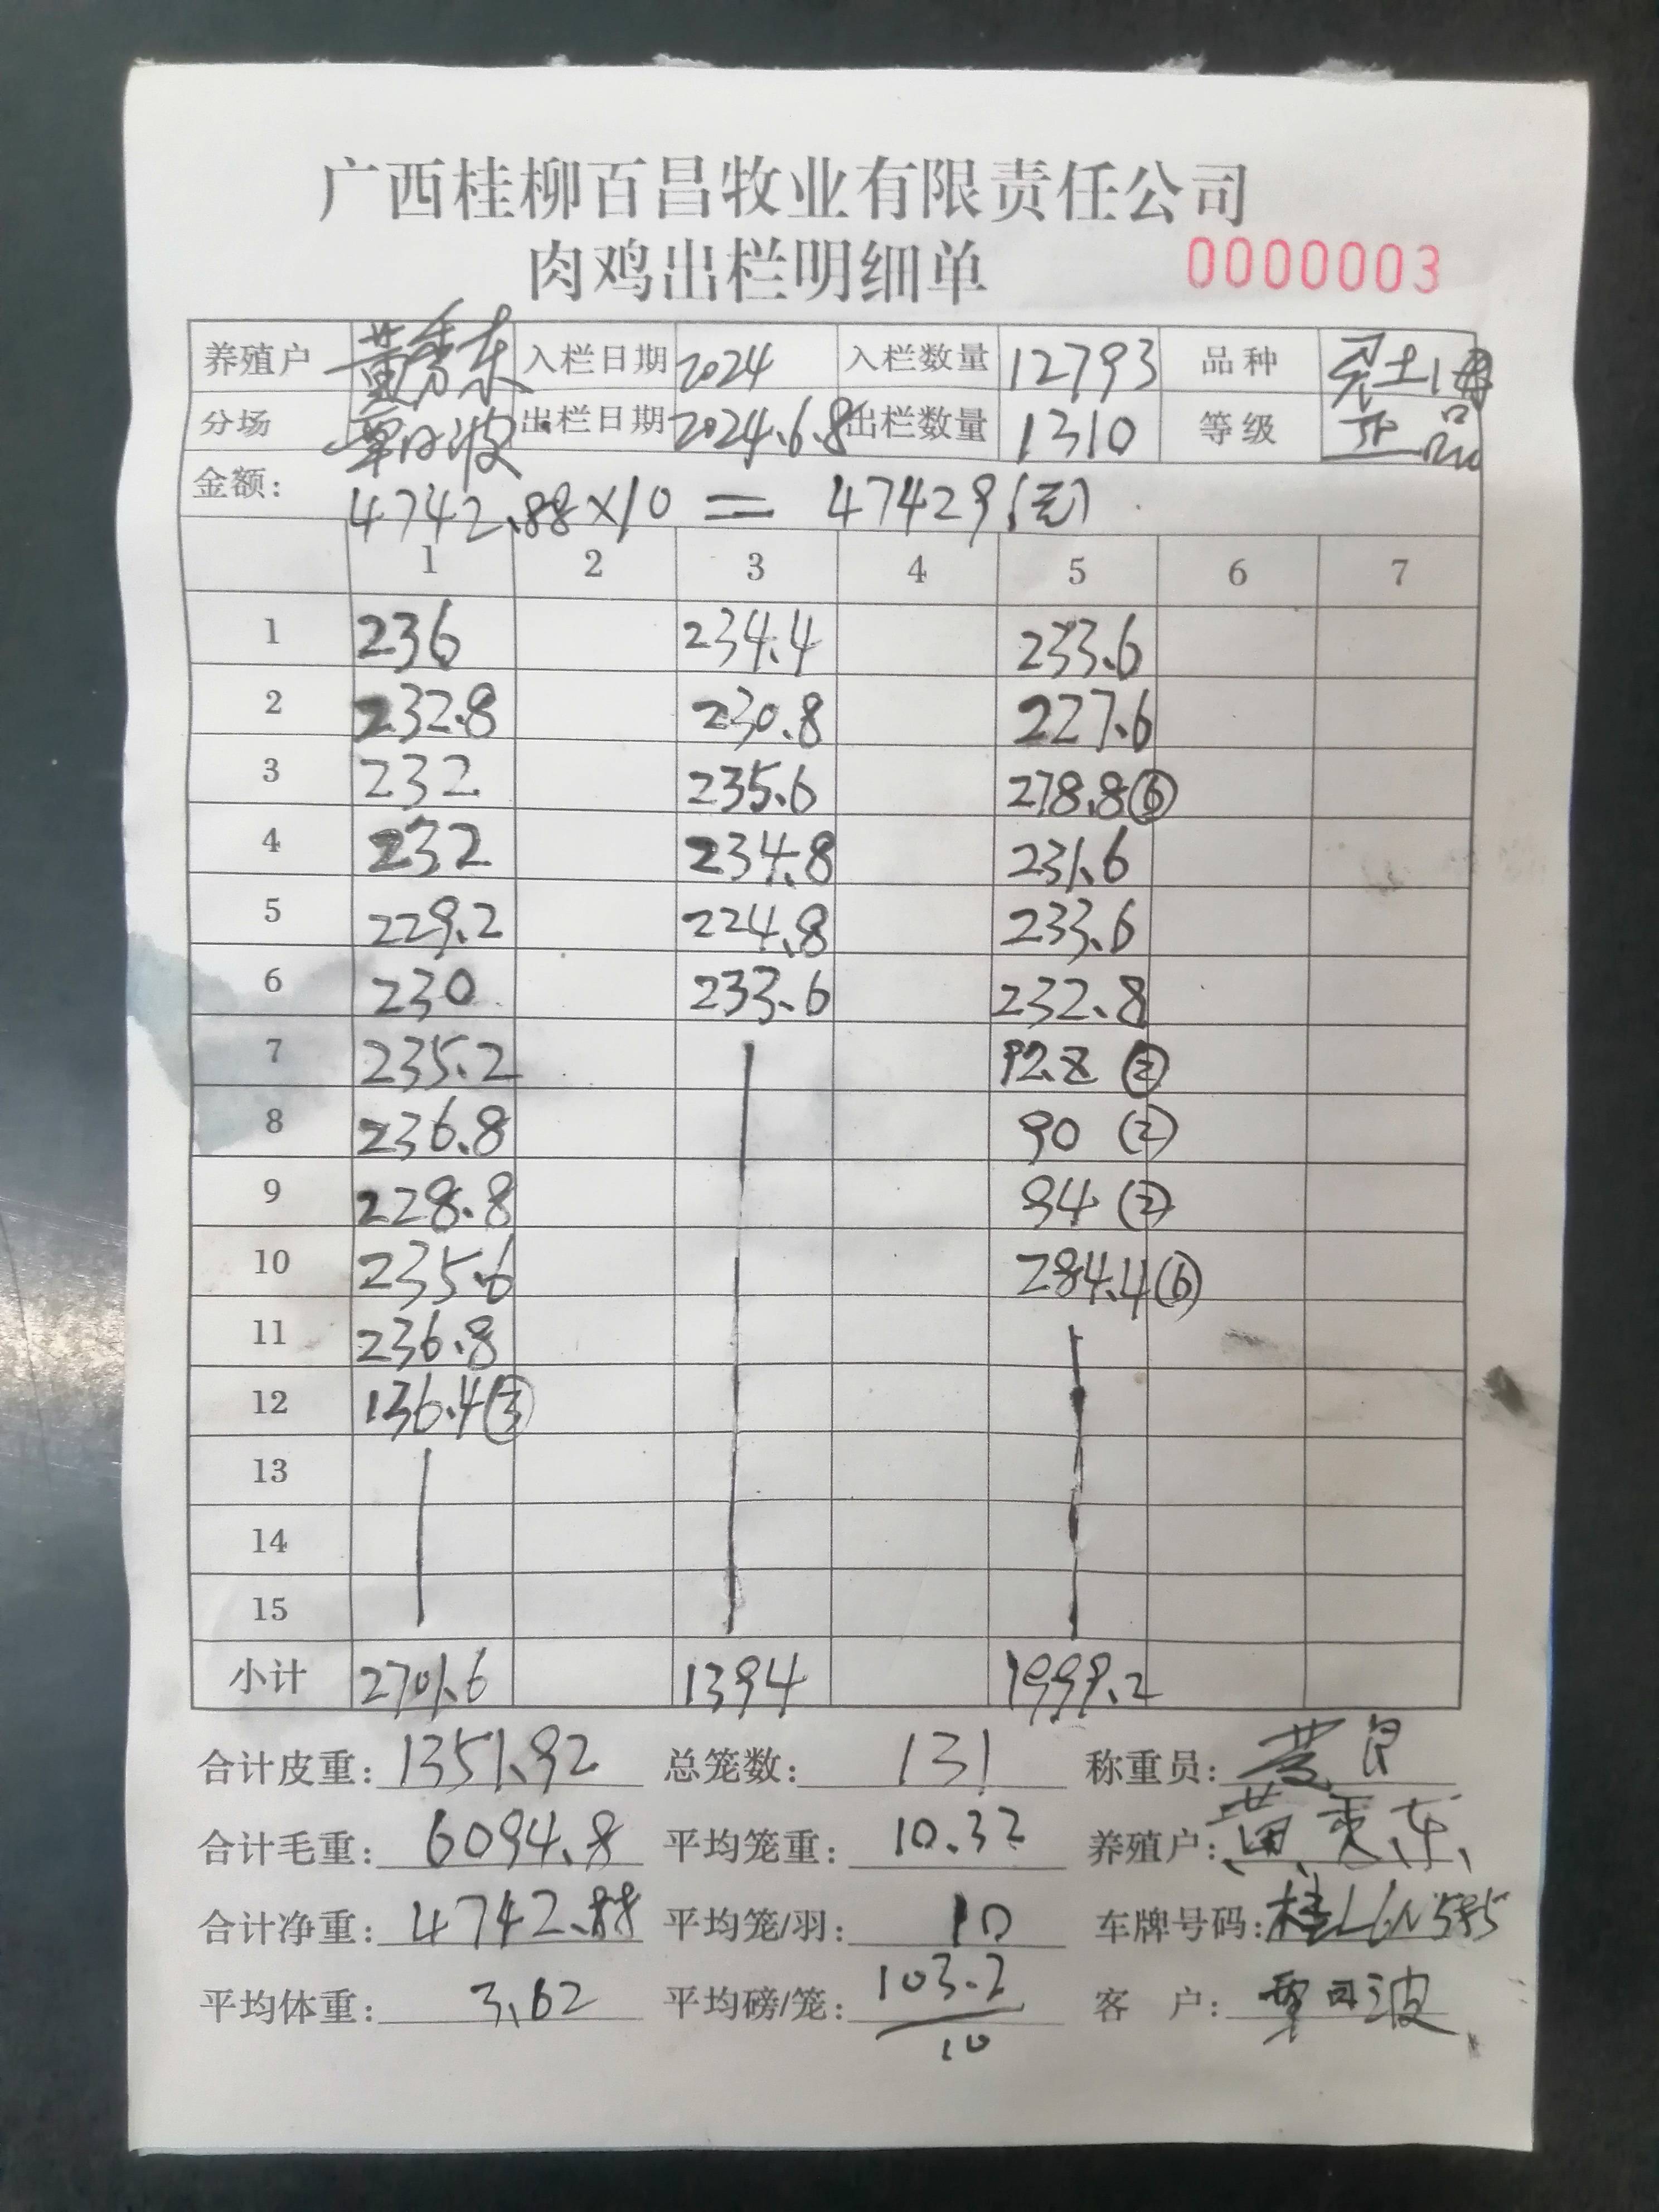 广西桂柳百昌牧业有限责任公司
肉鸡出栏明细单 0000003
养殖户 黄秀东 入栏日期 2024 入栏数量 12793 品种 土
分场 覃日波 出栏日期 2024.6.8 出栏数量 1310 等级 正品
金额: 4742.88×10 = 47429(元)
1 2 3 4 5 6 7
1 236 234.4 233.6
2 232.8 230.8 227.6
3 232 235.6 278.8⑥
4 232 234.8 231.6
5 229.2 224.8 233.6
6 230 233.6 232.8
7 235.2 92.8 ②
8 236.8 90 ②
9 228.8 94 ②
10 235.6 284.4⑥
11 236.8
12 136.4③
13
14
15
小计 2701.6 1394 1999.2
合计皮重: 1351.92 总笼数: 131 称重员:
合计毛重: 6094.8 平均笼重: 10.32 养殖户: 黄秀东
合计净重: 4742.88 平均笼/羽: 10 车牌号码:
平均体重: 3.62 平均磅/笼: 103.2 客 户: 覃日波
10